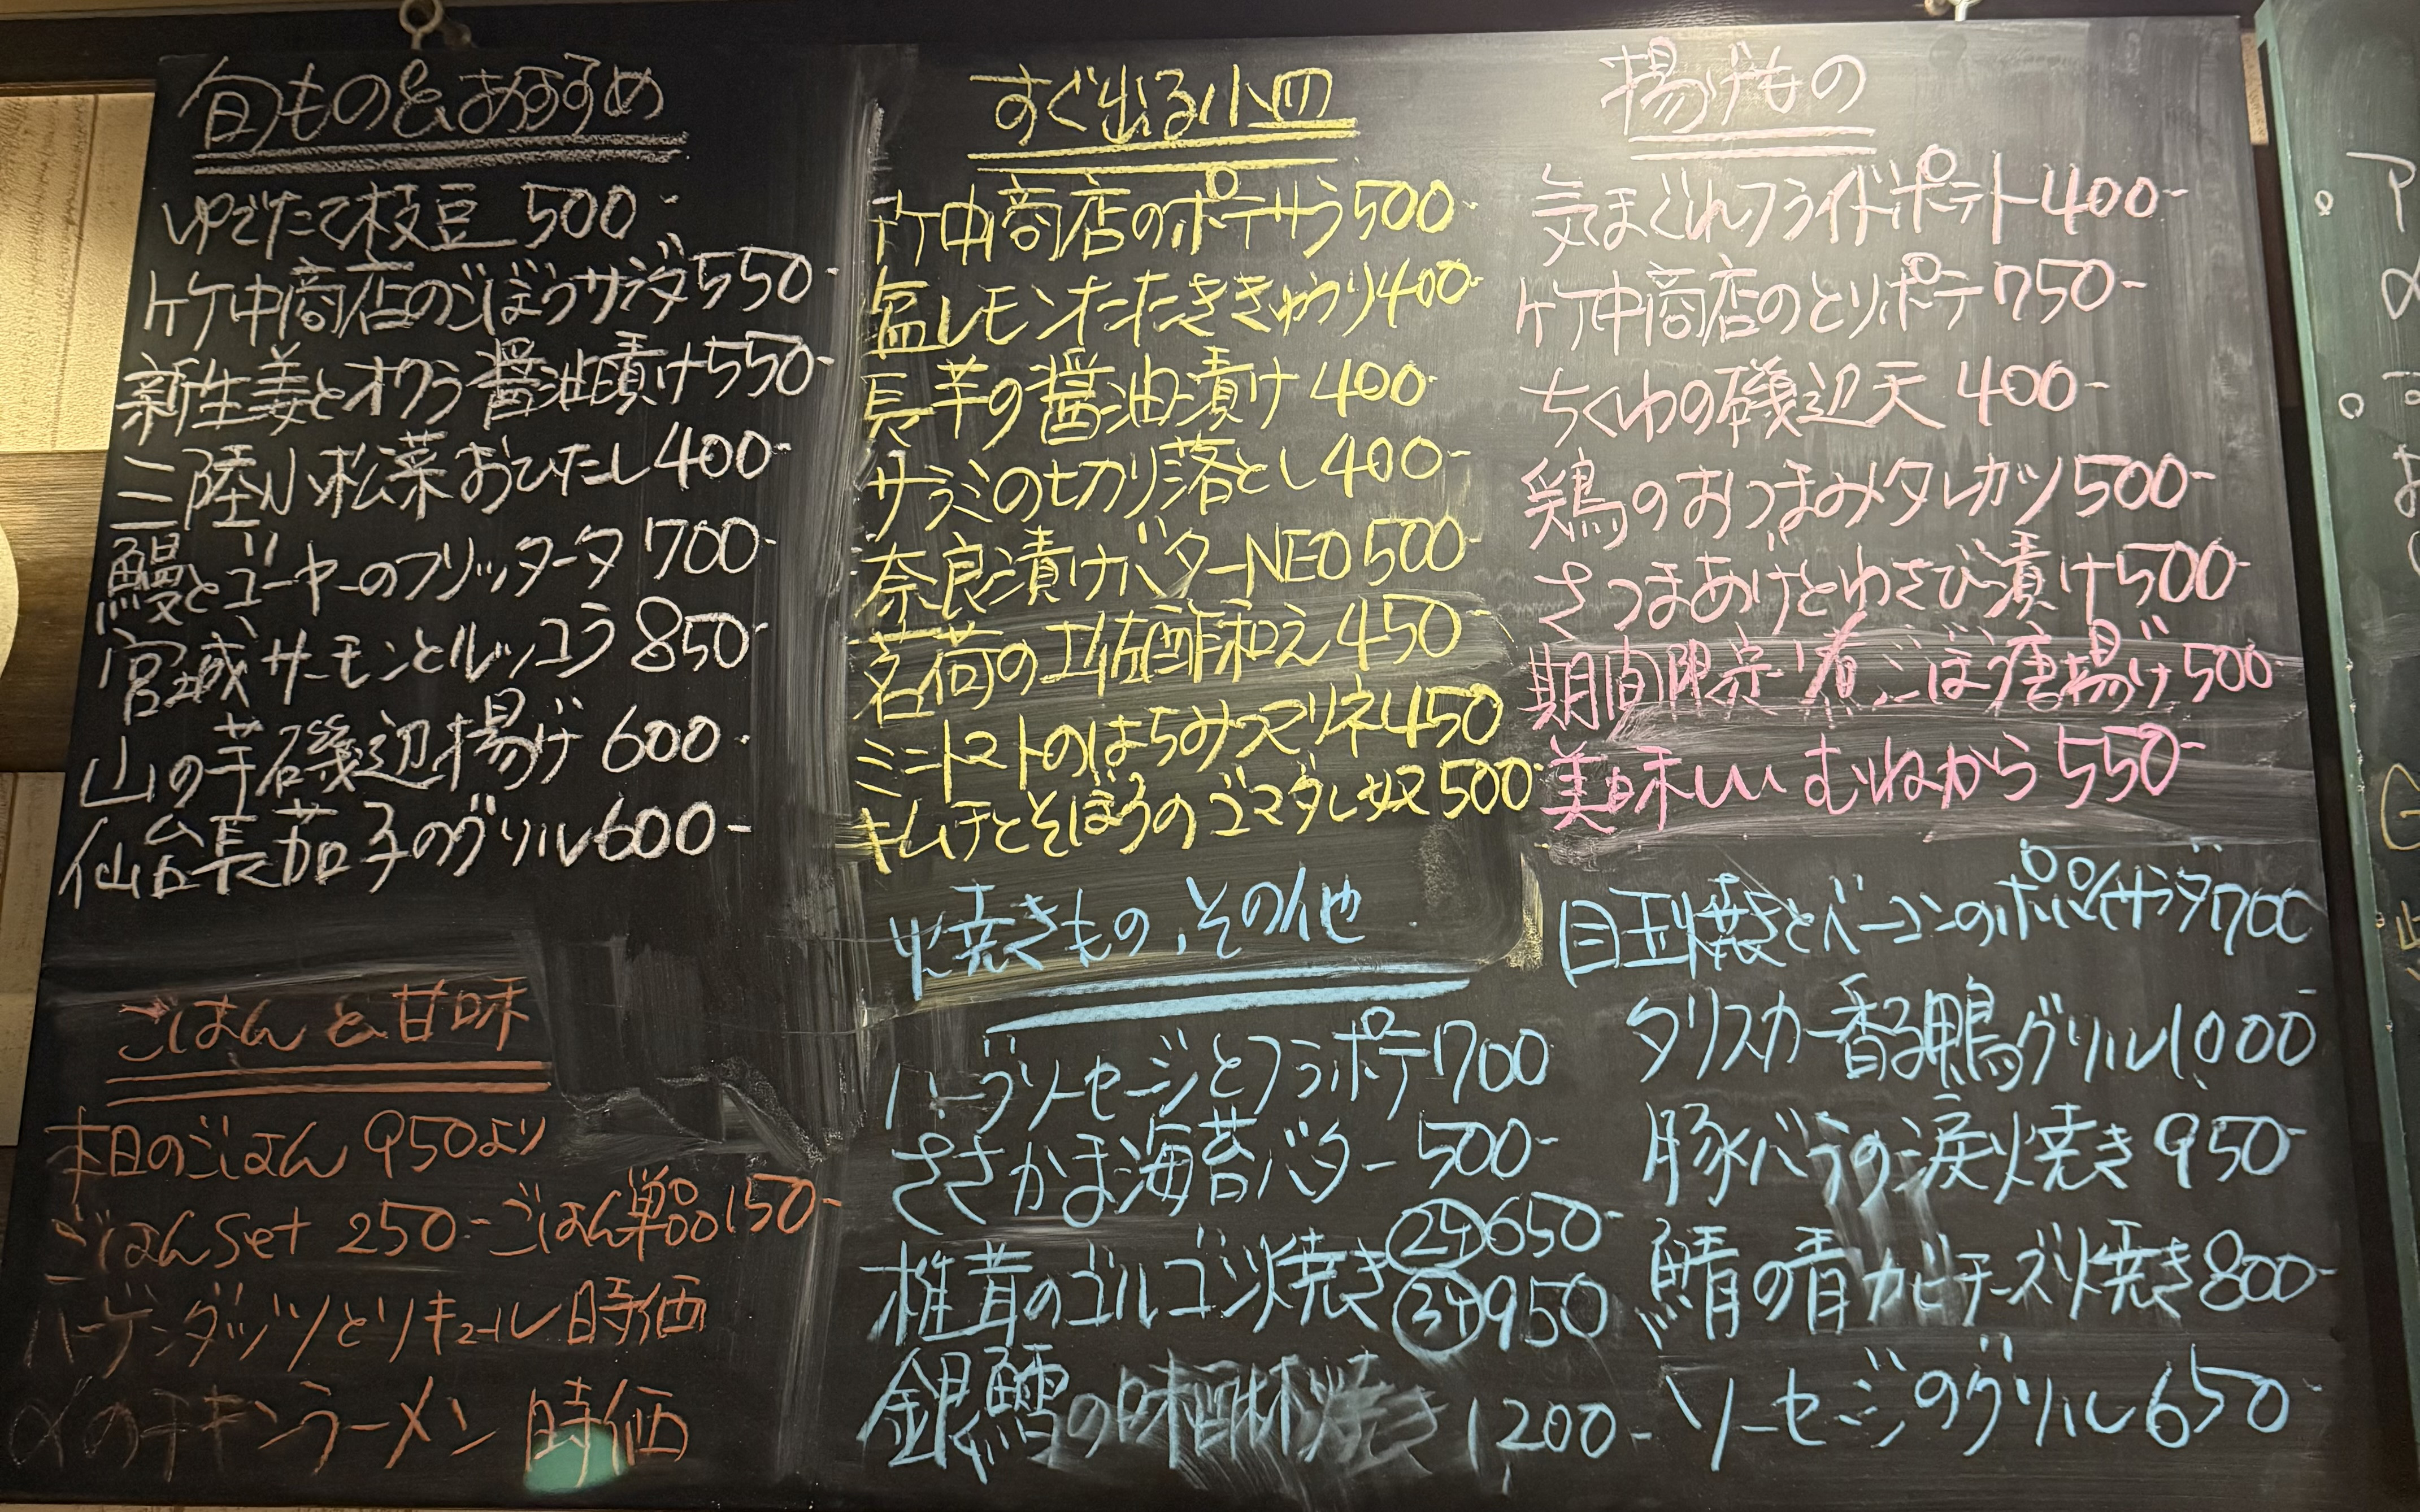 旬もの&おすすめ
ゆでたて枝豆 500-
竹中商店のごぼうサラダ550-
新生姜とオクラ醤油漬け550-
三陸小松菜おひたし400-
鰻とゴーヤーのフリッター 700-
宮城サーモンとルッコラ 850-
山の芋磯辺揚げ 600-
仙台長茄子のグリル600-
ごはん&甘味
本日のごはん 950より
ごはんset 250- ごはん単品150-
ハーゲンダッツとリキュール 時価
〆のチキンラーメン 時価
すぐ出る小皿
竹中商店のポテサラ500-
塩レモンたたききゅうり400-
長芋の醤油漬け 400-
サラミの切り落とし400-
奈良漬けバターNEO500-
茗荷の土佐酢和え450-
ミニトマトのはちみつマリネ450
キムチとそぼろのゴマダレ奴500-
揚げもの
気まぐれフライドポテト400-
竹中商店のとりポテ750-
ちくわの磯辺天 400-
鶏のおつまみタレカツ500-
さつまあげとわさび漬け500-
期間限定!煮ごぼう唐揚げ500-
美味しい むねから550-
焼きもの、その他
ハーブソーセージとフラポテ700
ささかま海苔バター 500-
椎茸のゴルゴン焼き ②ケ650-
③ケ950
銀鱈の味醂焼き 1200-
目玉焼きとベーコンのポパイサラダ700-
タリスカー香る鴨グリル1000
豚バラの涙焼き950-
鯖の青カビチーズ焼き800-
ソーセージのグリル650-